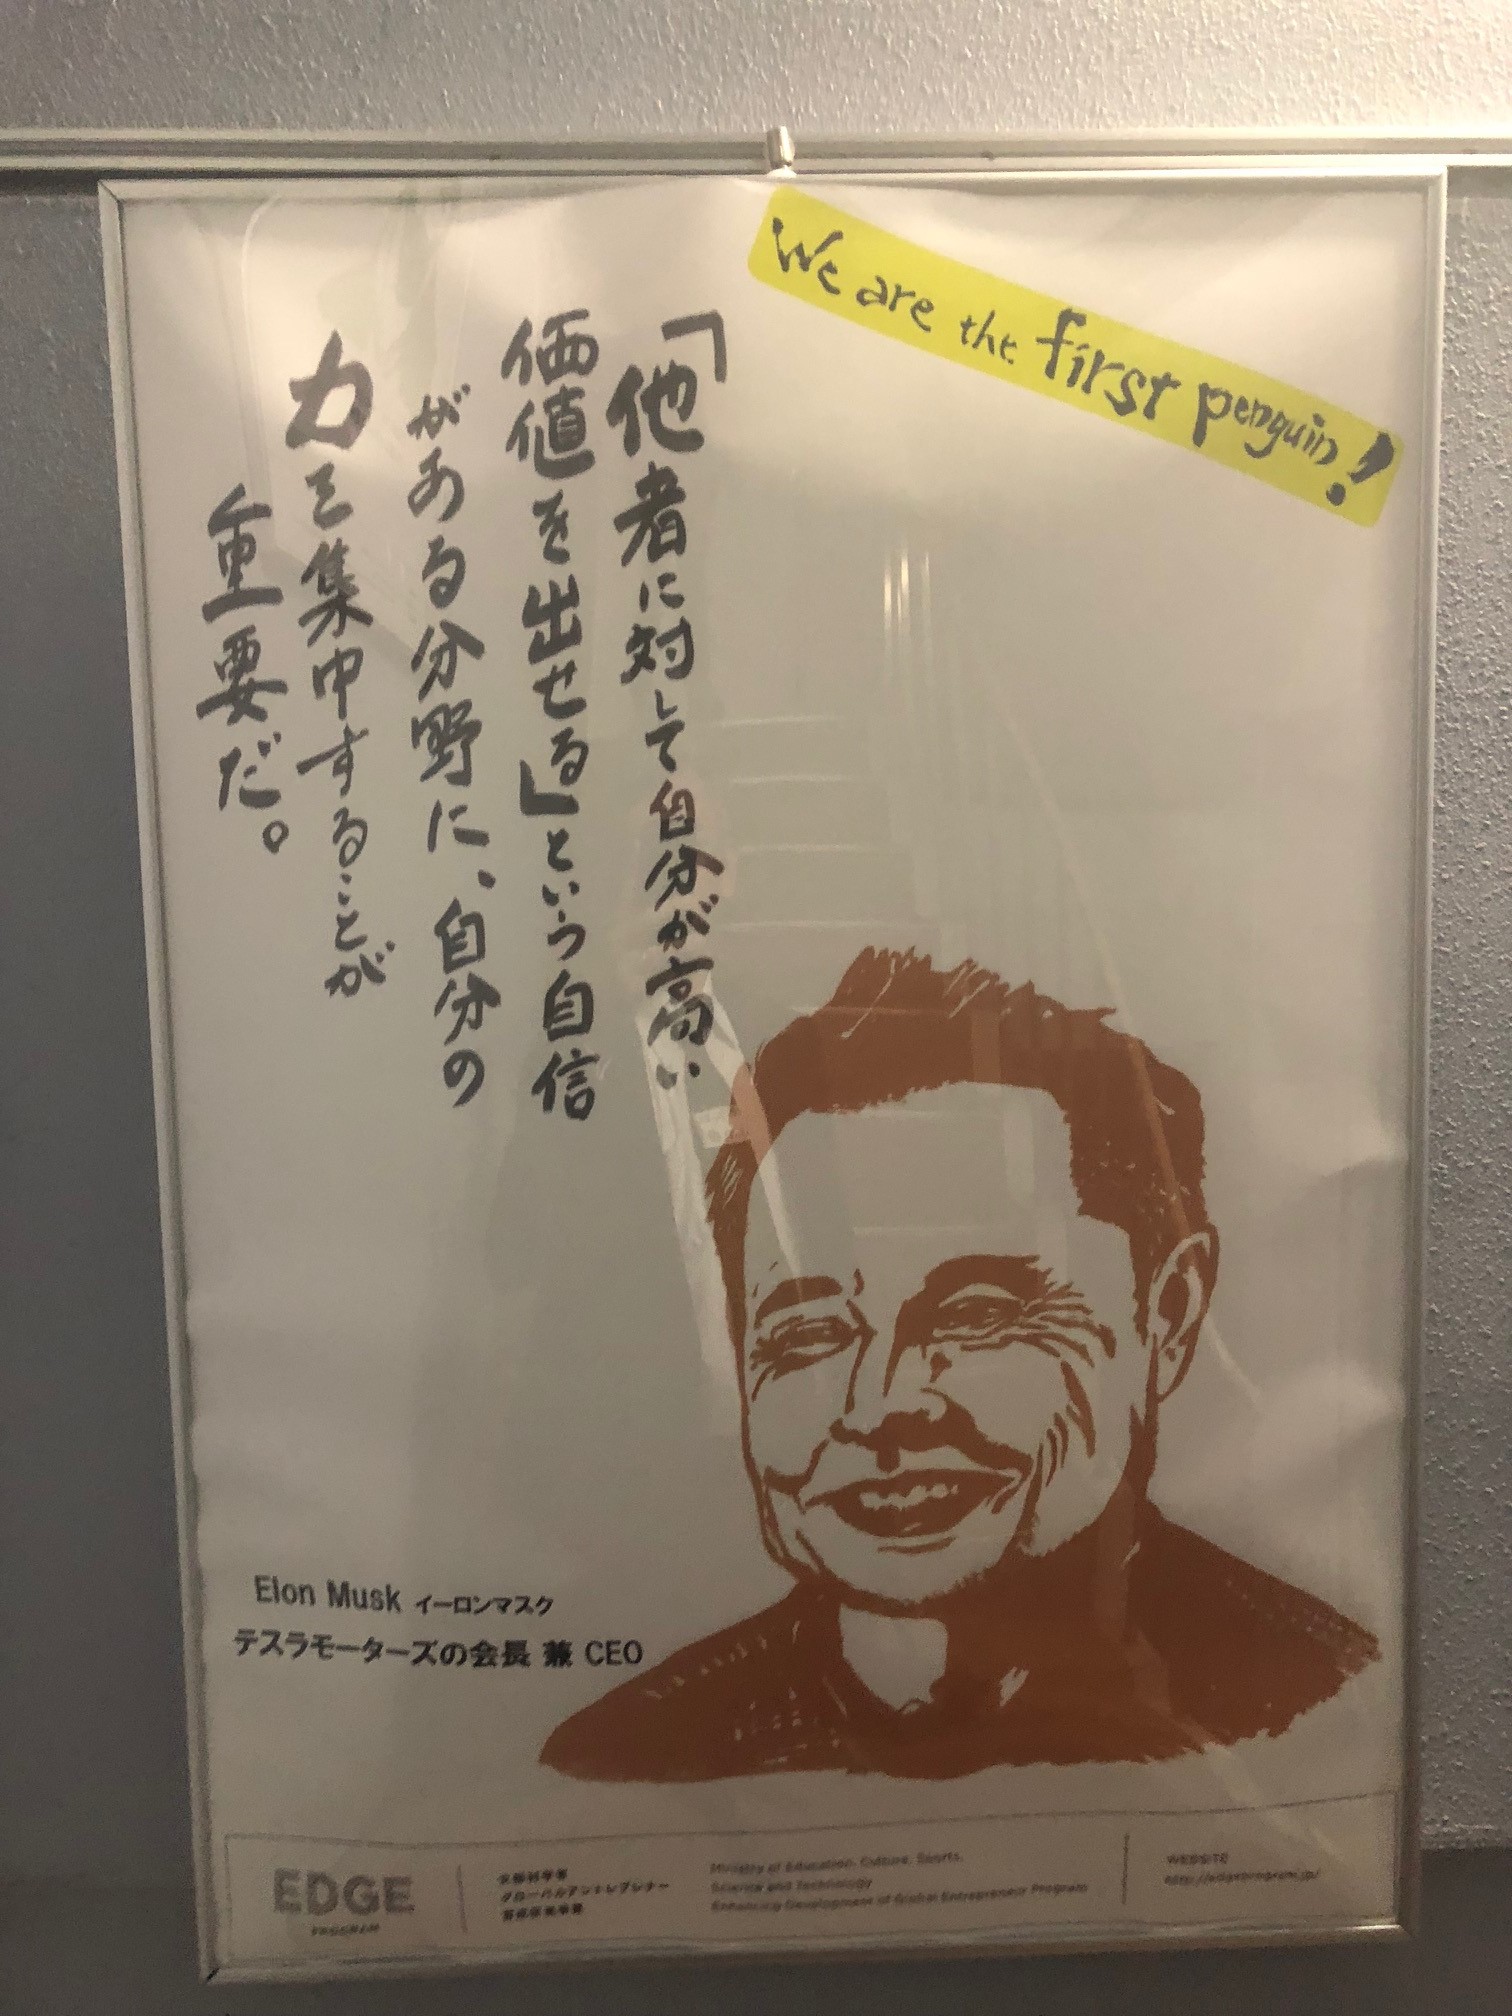 We are the first penguin!
「他者に対して自分が高い
価値を出せる」という自信
がある分野に、自分の
力を集中することが
重要だ。
Elon Musk イーロンマスク
テスラモーターズの会長 兼 CEO
EDGE
PROGRAM
文部科学省
グローバルアントレプレナー
育成促進事業
Ministry of Education, Culture, Sports,
Science and Technology
Enhancing Development of Global Entrepreneur Program
WEBSITE
http://edgeprogram.jp/